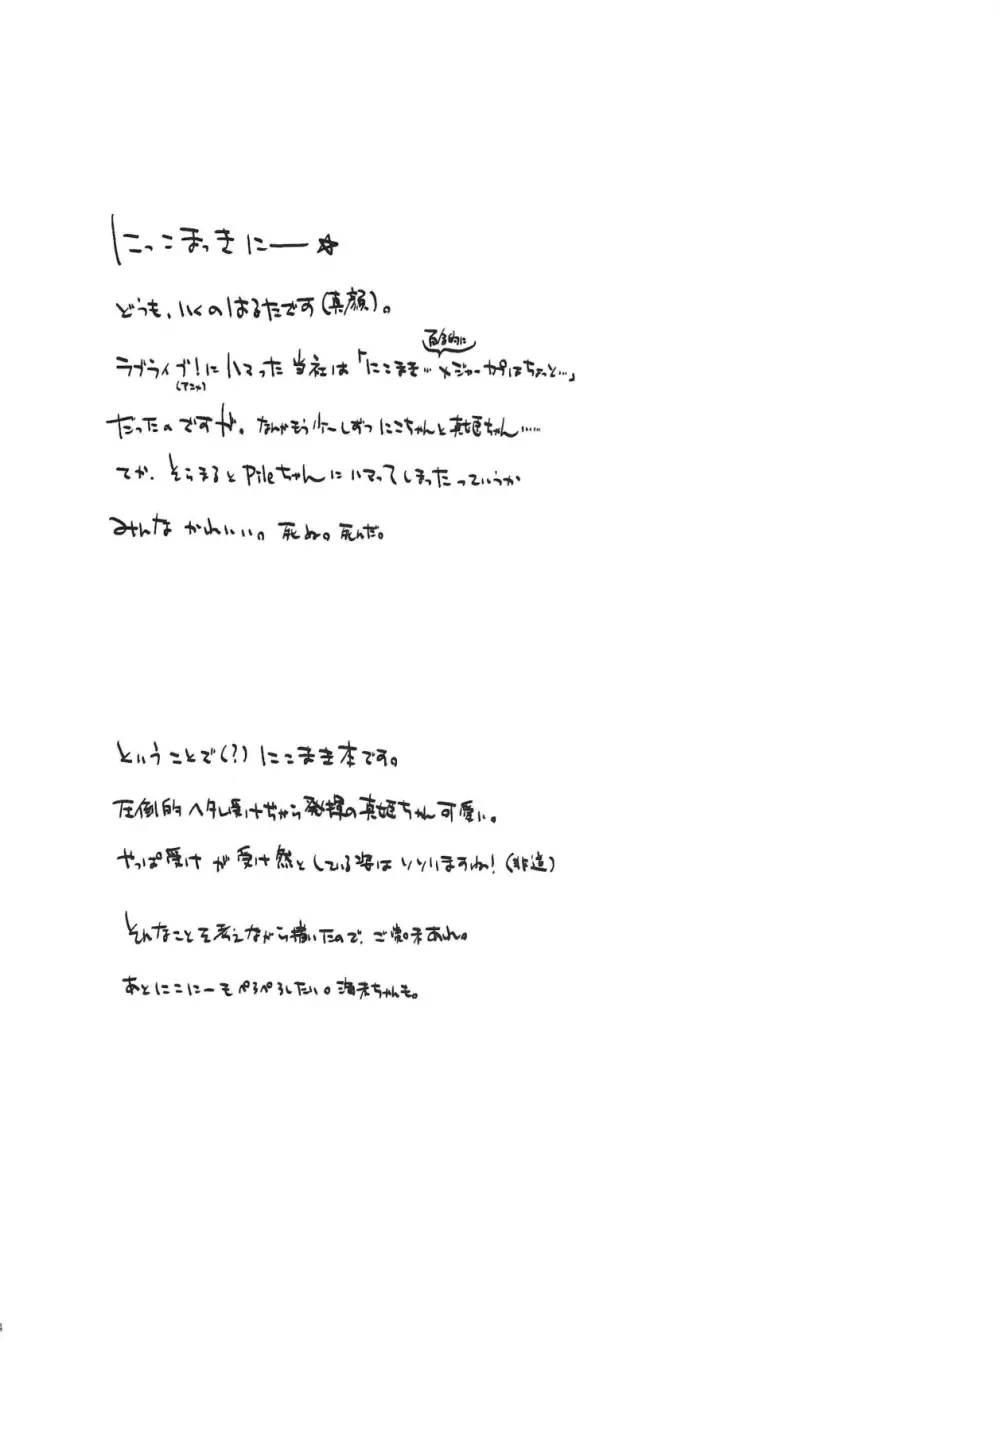 にっこまっきにー☆
どうも、いくのはるたです(真顔)。
百合的に
ラブライブ!にハマった当社は「にこまき… メジャーカプはちょっと…」
(アニメ)
だったのですが、なんかもう少ーしずつにこちゃんと真姫ちゃん……
てか、そらまるとPileちゃんにハマってしまったっていうか
みんなかわいい。死ぬ。死んだ。
ということで(?)にこまき本です。
圧倒的ヘタレ受けぢから発揮の真姫ちゃん可愛い。
やっぱ受けが受け然としている姿はいいいますね!
そんなことを考えながら描いたので、ご笑味あれ。
あとにこにーもぺろぺろしたい。海未ちゃんも。
4